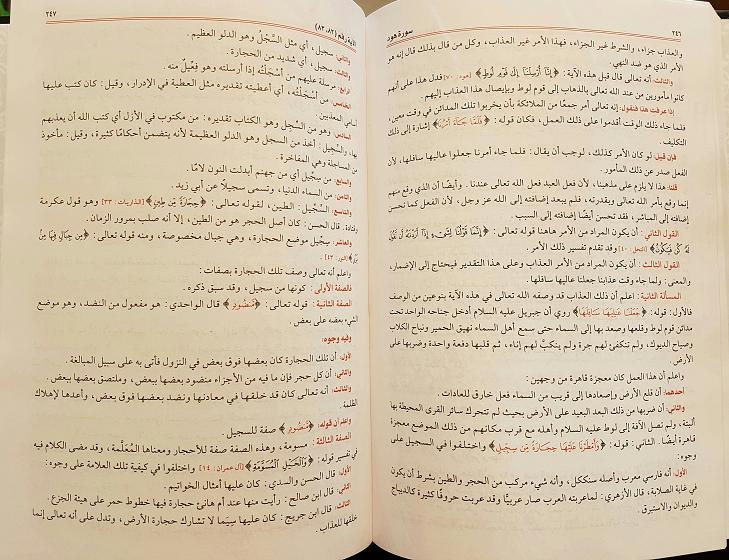 ٢٤٦
سورة هود
والعذاب جزاء، والشرط غير الجزاء، فهذا الأمر غير العذاب، وكل من قال بذلك قال إنه هو
الأمر الذي هو ضد النهي.
والثالث: أنه تعالى قال قبل هذه الآية: ﴿إِنَّا أُرْسِلْنَا إِلَى قَوْمِ لُوطٍ﴾ [هود: ٧٠] فدل هذا على أنهم
كانوا مأمورين من عند الله تعالى بالذهاب إلى قوم لوط وبإيصال هذا العذاب إليهم.
إذا عرفت هذا فنقول: إنه تعالى أمر جمعًا من الملائكة بأن يخربوا تلك المدائن في وقت معين،
فلما جاء ذلك الوقت أقدموا على ذلك العمل، فكان قوله: ﴿فَلَمَّا جَاءَ أَمْرُنَا﴾ إشارة إلى ذلك
التكليف.
فإن قيل: لو كان الأمر كذلك، لوجب أن يقال: فلما جاء أمرنا جعلوا عاليها سافلها، لأن
الفعل صدر عن ذلك المأمور.
قلنا: هذا لا يلزم على مذهبنا، لأن فعل العبد فعل الله تعالى عندنا. وأيضًا أن الذي وقع منهم
إنما وقع بأمر الله تعالى وبقدرته، فلم يبعد إضافته إلى الله عز وجل، لأن الفعل كما تحسن
إضافته إلى المباشر، فقد تحسن أيضًا إضافته إلى السبب.
القول الثاني: أن يكون المراد من الأمر هاهنا قوله تعالى: ﴿إِنَّمَا قَوْلُنَا لِشَيْءٍ إِذَا أَرَدْنَاهُ أَن نَّقُولَ
لَهُ كُن فَيَكُونُ﴾ [النحل: ٤٠] وقد تقدم تفسير ذلك الأمر.
القول الثالث: أن يكون المراد من الأمر العذاب وعلى هذا التقدير فيحتاج إلى الإضمار،
والمعنى: ولما جاء وقت عذابنا جعلنا عاليها سافلها.
المسألة الثانية: اعلم أن ذلك العذاب قد وصفه الله تعالى في هذه الآية بنوعين من الوصف
فالأول: قوله: ﴿جَعَلْنَا عَالِيَهَا سَافِلَهَا﴾ روي أن جبريل عليه السلام أدخل جناحه الواحد تحت
مدائن قوم لوط وقلعها وصعد بها إلى السماء حتى سمع أهل السماء نهيق الحمير ونباح الكلاب
وصياح الديوك، ولم تنكفئ لهم جرة ولم ينكب لهم إناء، ثم قلبها دفعة واحدة وضربها على
الأرض.
واعلم أن هذا العمل كان معجزة قاهرة من وجهين:
أحدهما: أن قلع الأرض وإصعادها إلى قريب من السماء فعل خارق للعادات.
والثاني: أن ضربها من ذلك البعد البعيد على الأرض بحيث لم تتحرك سائر القرى المحيطة بها
ألبتة، ولم تصل الآفة إلى لوط عليه السلام وأهله مع قرب مكانهم من ذلك الموضع معجزة
قاهرة أيضًا. الثاني: قوله: ﴿وَأَمْطَرْنَا عَلَيْهَا حِجَارَةً مِّن سِجِّيلٍ﴾ واختلفوا في السجيل على
وجوه:
الأول: أنه فارسي معرب وأصله سنككل، وأنه شيء مركب من الحجر والطين بشرط أن يكون
في غاية الصلابة، قال الأزهري: لما عربته العرب صار عربيًّا وقد عربت حروفًا كثيرة كالديباج
والديوان والاستبرق.
الآية رقم (٨٢، ٨٣)
٢٤٧
والثاني: سجيل، أي مثل السَّجْل وهو الدلو العظيم.
والثالث: سجيل، أي شديد من الحجارة.
الرابع: مرسلة عليهم من أسْجَلْتُه إذا أرسلته وهو فِعِّيل منه.
الخامس: من أسْجَلْتُه، أي أعطيته تقديره مثل العطية في الإدرار، وقيل: كان كتب عليها
أسامي المعذبين.
السادس: وهو من السِّجل وهو الكتاب تقديره: من مكتوب في الأزل أي كتب الله أن يعذبهم
بها، والسِّجيل: أخذ من السجل وهو الدلو العظيمة لأنه يتضمن أحكامًا كثيرة، وقيل: مأخوذ
من المساجلة وهي المفاخرة.
والسابع: من سجيل أي من جهنم أبدلت النون لامًا.
والثامن: من السماء الدنيا، وتسمى سجيلًا عن أبي زيد.
والتاسع: السِّجِّيل: الطين، لقوله تعالى: ﴿حِجَارَةً مِّن طِينٍ﴾ [الذاريات: ٣٣] وهو قول عكرمة
وقتادة. قال الحسن: كان أصل الحجر هو من الطين، إلا أنه صلب بمرور الزمان.
والعاشر: سجيل موضع الحجارة، وهي جبال مخصوصة، ومنه قوله تعالى: ﴿مِن جِبَالٍ فِيهَا مِنْ
بَرَدٍ﴾ [النور: ٤٣].
واعلم أنه تعالى وصف تلك الحجارة بصفات:
فالصفة الأولى: كونها من سجيل، وقد سبق ذكره.
الصفة الثانية: قوله تعالى: ﴿مَّنضُودٍ﴾ قال الواحدي: هو مفعول من النضد، وهو موضع
الشيء بعضه على بعض.
وفيه وجوه:
الأول: أن تلك الحجارة كان بعضها فوق بعض في النزول فأتى به على سبيل المبالغة.
والثاني: أن كل حجر فإن ما فيه من الأجزاء منضود بعضها ببعض، وملتصق بعضها ببعض.
والثالث: أنه تعالى كان قد خلقها في معادنها ونضد بعضها فوق بعض، وأعدها لإهلاك
الظلمة.
واعلم أن قوله: ﴿مَّنضُودٍ﴾ صفة للسجيل.
الصفة الثالثة: مسومة، وهذه الصفة صفة للأحجار ومعناها المُعَلَّمة، وقد مضى الكلام فيه
في تفسير قوله: ﴿وَالْخَيْلِ الْمُسَوَّمَةِ﴾ [آل عمران: ١٤] واختلفوا في كيفية تلك العلامة على وجوه:
الأول: قال الحسن والسدي: كان عليها أمثال الخواتيم.
الثاني: قال ابن صالح: رأيت منها عند أم هانئ حجارة فيها خطوط حمر على هيئة الجزع.
الثالث: قال ابن جريج: كان عليها سِيمَا لا تشارك حجارة الأرض، وتدل على أنه تعالى إنما
خلقها للعذاب.